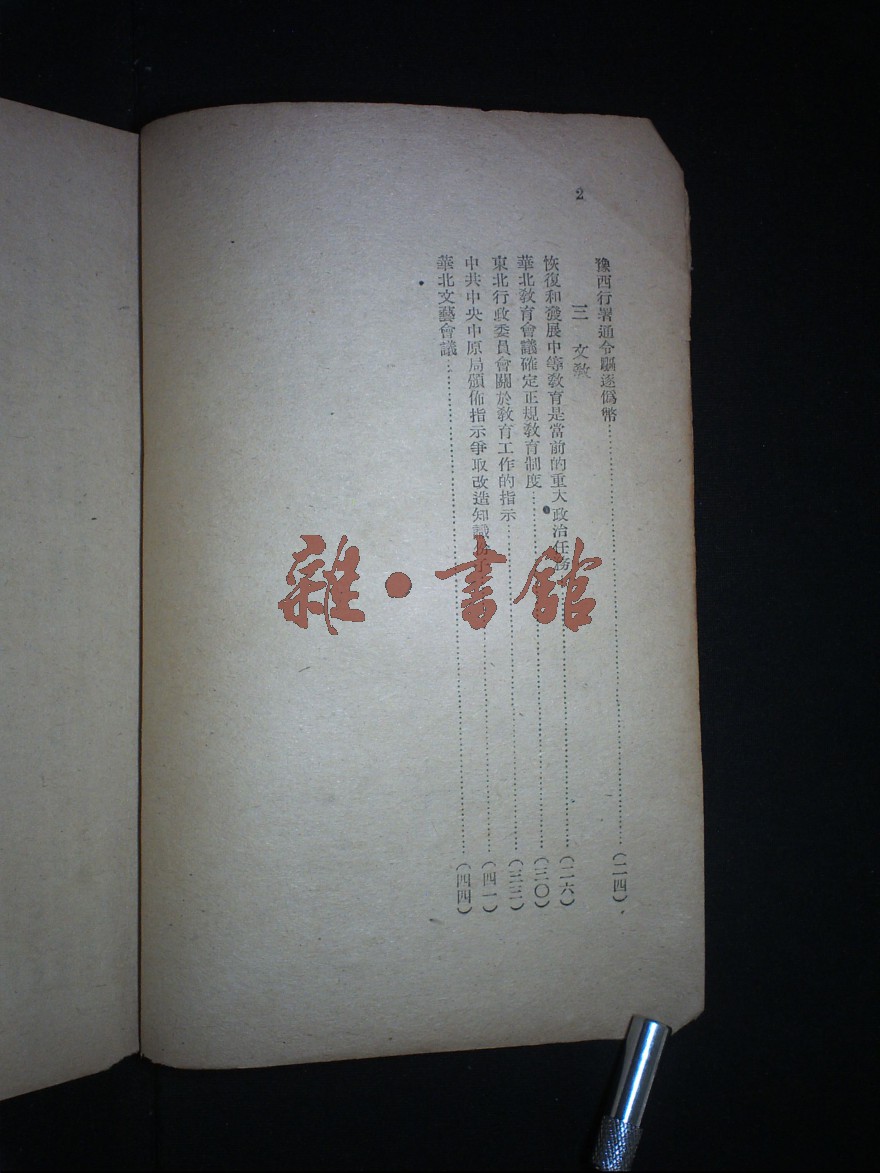 2
豫西行署通令驅逐僞幣……(二四)
三 文教
恢復和發展中等教育是當前的重大政治任務……(二六)
華北教育會議確定正規教育制度……(三〇)
東北行政委員會關於教育工作的指示……(三三)
中共中央中原局頒佈指示爭取改造知識……(四一)
華北文藝會議……(四四)
雜·書館